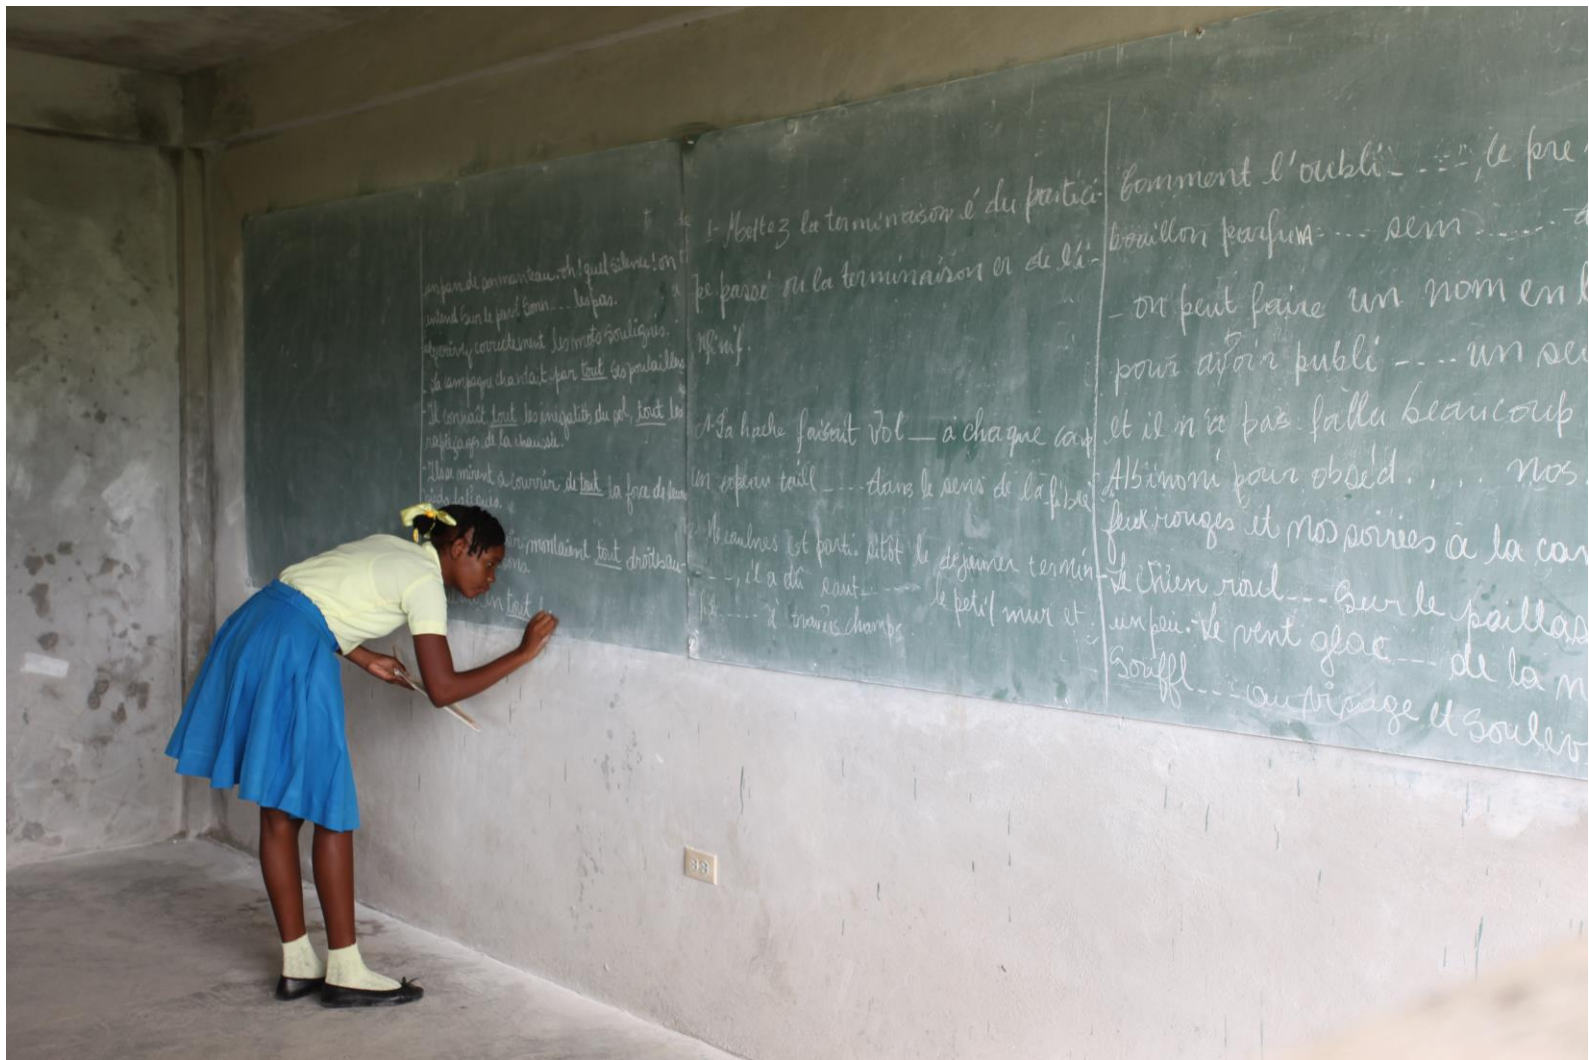 un pan de son manteau. oh! quel silence! on
entend sur le pavé sonn.... les pas.
correctement les mots soulignés.
La campagne chantait par tout ses poulaillers
- Il connaît tout les inégalités du sol, tout les
rapiéçages de la chaussée.
- Ils se mirent à courrir de tout la force de leurs
montaient tout droits au-
en tout
1- Mettez la terminaison é du partici-
pe passé ou la terminaison er de l'i-
nfinif.
1- La hache faisait vol__ à chaque coup
un copeau taill .... dans le sens de la fibre
est parti sitôt le dejeuner termin-
...., il a dû saut...... le petit mur et
à travers champs.
Comment l'oubli- ....., le pre
bouillon parfum..... sem ......
- on peut faire un nom en
pour avoir publi ..... un
et il n'a pas fallu beaucoup
Albinoni pour obséd..... nos
feux rouges et nos soirées à la
Le chien roul.... sur le paillas
un peu. Le vent glac.... de la
souffl.... au visage et soulev